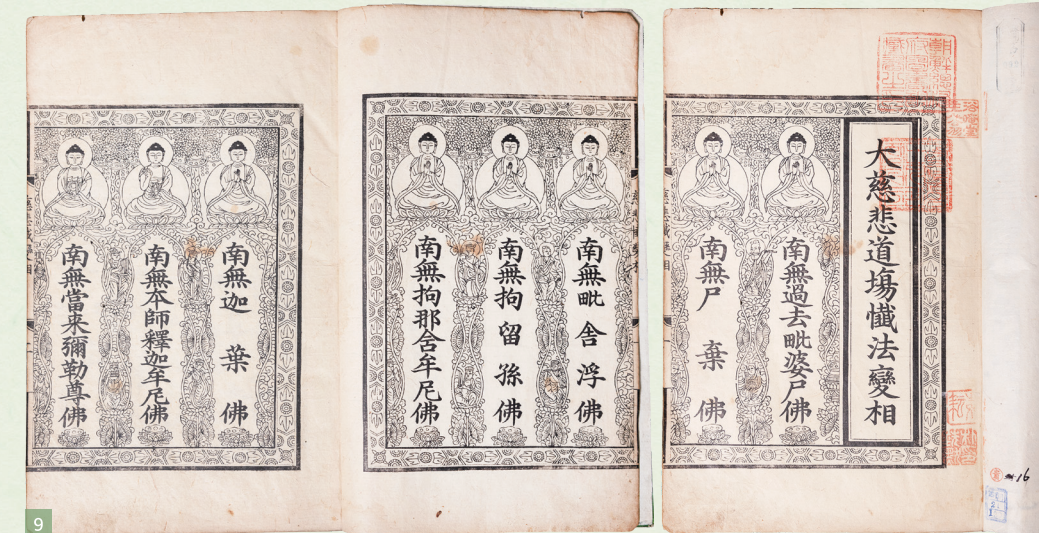 大慈悲道塲懺法變相
南無過去毗婆尸佛
南無尸棄佛
南無毗舍浮佛
南無拘留孫佛
南無拘那舍牟尼佛
南無迦葉佛
南無本師釋迦牟尼佛
南無當来彌勒尊佛
16
9